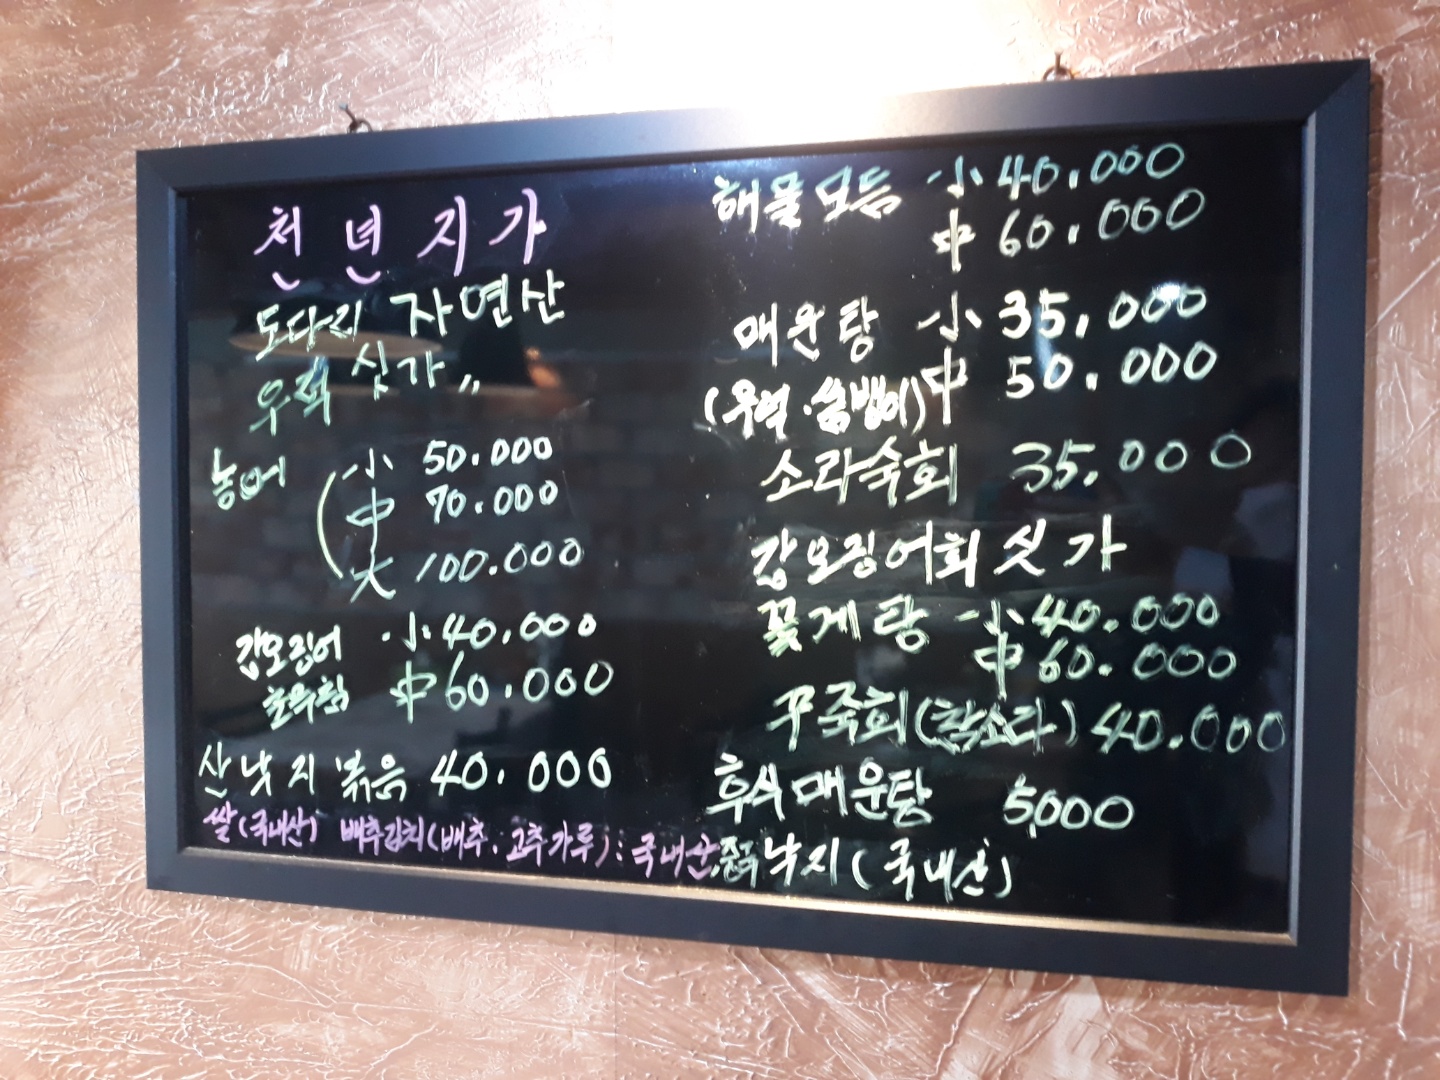 천년지가
도다리 자연산
우럭 싯가〃
농어 (小 50.000
中 70.000
大 100.000
갑오징어 小 40.000
초무침 中 60.000
산낙지볶음 40.000
쌀(국내산) 배추김치(배추.고추가루):국내산.
해물모듬 小 40.000
中 60.000
매운탕 小 35,000
(우럭.쏨뱅이) 中 50.000
소라숙회 35.000
갑오징어회 싯가
꽃게탕 小 40.000
中 60.000
꾸죽회(참소라) 40.000
후식매운탕 5,000
낙지(국내산)